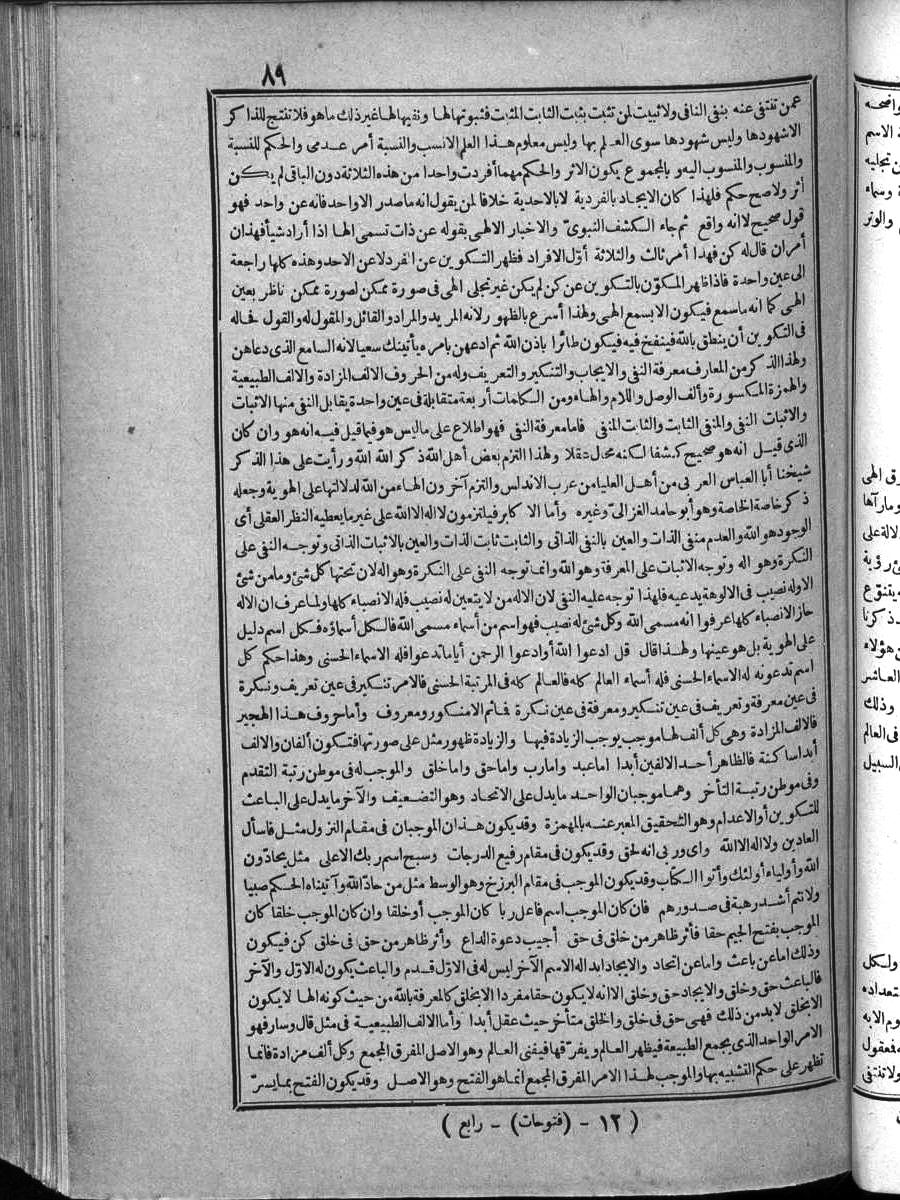 ٨٩
عمن تنتفى عنه بنفى النافى ولا ثبيت لمن تثبت بثبت الثابت المثبت فثبوتها لها ونفيها لها غير ذلك ما هو فلا تنتج للذا كر
الا شهودها وليس شهودها سوى العلم بها وليس معلوم هذا العلم الا نسب والنسبة أمر عدمى والحكم للنسبة
والمنسوب والمنسوب اليه وبالمجموع يكون الاثر والحكم مهما أفردت واحدا من هذه الثلاثة دون الباقى لم يكن
أثر ولا صح حكم فلهذا كان الايجاد بالفردية لا بالاحدية خلافا لمن يقول انه ما صدر الا واحد فانه عن واحد فهو
قول صحيح لا انه واقع ثم جاء الكشف النبوىّ والاخبار الالهى بقوله عن ذات تسمى الها اذا أراد شيأ فهذان
أمران قال له كن فهذا أمر ثالث والثلاثة أوّل الافراد فظهر التكوين عن الفرد لا عن الاحد وهذه كلها راجعة
الى عين واحدة فاذا ظهر المكوّن بالتكوين عن كن لم يكن غير تجلى الهى فى صورة ممكن لصورة ممكن ناظر بعين
الهى كما انه ما سمع فيكون الا بسمع الهى ولهذا أسرع بالظهور لانه المريد والمراد والقائل والمقول له والقول فحاله
فى التكوين أن ينطق بالله فينفخ فيه فيكون طائرا باذن الله ثم ادعهن بامره يأتينك سعيا لانه السامع الذى دعاهن
ولهذا الذكر من المعارف معرفة النفى والايجاب والتنكير والتعريف وله من الحروف الالف المزادة والالف الطبيعية
والهمزة المكسورة وألف الوصل واللام والهاء ومن الكلمات أربعة متقابلة فى عين واحدة يقابل النفى منها الاثبات
والاثبات النفى والمنفى الثابت والثابت المنفى فاما معرفة النفى فهو اطلاع على ما ليس هو فيما قيل فيه انه هو وان كان
الذى قيل انه هو صحيح كشفا لكنه محال عقلا ولهذا التزم بعض أهل الله ذكر الله الله ورأيت على هذا الذكر
شيخنا أبا العباس العريى من أهل العليا من غرب الاندلس والتزم آخرون الهاء من الله لدلالتها على الهوية وجعله
ذكر خاصة الخاصة وهو أبو حامد الغزالىّ وغيره وأما الاكابر فيلتزمون لا اله الا الله على غير ما يعطيه النظر العقلى أى
الوجود هو الله والعدم منفى الذات والعين بالنفى الذاتى والثابت ثابت الذات والعين بالاثبات الذاتى وتوجه النفى على
النكرة وهو اله وتوجه الاثبات على المعرفة وهو الله وانما توجه النفى على النكرة وهو اله لان تحتها كل شئ وما من شئ
الا وله نصيب فى الالوهة يدعيه فلهذا توجه عليه النفى لان الاله من لا يتعين له نصيب فله الانصباء كلها ولما عرف ان الاله
حاز الانصباء كلها عرفوا انه مسمى الله وكل شئ له نصيب فهو اسم من أسماء مسمى الله فالكل أسماؤه فكل اسم دليل
على الهوية بل هو عينها ولهذا قال قل ادعوا الله أو ادعوا الرحمن أيا ما تدعوا فله الاسماء الحسنى وهذا حكم كل
اسم تدعونه له الاسماء الحسنى فله أسماء العالم كله فالعالم كله فى المرتبة الحسنى فالامر تنكير فى عين تعريف ونكرة
فى عين معرفة وتعريف فى عين تنكير ومعرفة فى عين نكرة فما ثم الا منكور ومعروف وأما حروف هذا الهجير
فالالف المزادة وهى كل ألف لها موجب يوجب الزيادة فيها والزيادة ظهور مثل على صورتها فتكون ألفان والالف
أبدا ساكنة فالظاهر أحد الالفين أبدا اما عبد واما رب واما حق واما خلق والموجب له فى موطن رتبة التقدم
وفى موطن رتبة التأخر وهما موجبان الواحد ما يدل على الاتحاد وهو التضعيف والآخر ما يدل على الباعث
للتكوين أو الاعدام وهو التحقيق المعبر عنه بالمهمزة وقد يكون هذان الموجبان فى مقام النزول مثل فاسأل
العادين ولا اله الا الله واى وربى انه لحق وقد يكون فى مقام رفيع الدرجات وسبح اسم ربك الاعلى مثل يحادّون
الله وأولياء أولئك وأتوا الكتاب وقد يكون الموجب فى مقام البرزخ وهو الوسط مثل من حادّ الله وآتيناه الحكم صبيا
ولانتم أشد رهبة فى صدورهم فان كان الموجب اسم فاعل ربا كان الموجب أو خلقا وان كان الموجب خلقا كان
الموجب بفتح الجيم حقا فأثر ظاهر من خلق فى حق أجيب دعوة الداع وأثر ظاهر من حق فى خلق كن فيكون
وذلك اما عن باعث واما عن اتحاد والايجاد ابدا له الاسم الآخر ليس له فى الاوّل قدم والباعث يكون له الاوّل والآخر
فالباعث حق وخلق والايجاد حق وخلق الا انه لا يكون حقا مفردا الا بخلق كالمعرفة بالله من حيث كونه الها لا يكون
الا بخلق لابد من ذلك فهى حق فى خلق والخلق متأخر حيث عقل أبدا وأما الالف الطبيعية فى مثل قال وسار فهو
الامر الواحد الذى يجمع الطبيعة فيظهر العالم ويفرّقها فيفنى العالم وهو الاصل المفرق المجمع وكل ألف مزادة فانما
تظهر على حكم التشبيه بها والموجب لهذا الامر المفرق المجمع انما هو الفتح وهو الاصل وقد يكون الفتح بما يسرّ
( ١٢ - (فتوحات) - رابع )
واضحه
ة الاسم
ن تجليه
ة وسماء
والوتر
رق الهى
وما رآها
لالة على
ئ رؤية
ه يتنوّع
دذكرنا
ن هؤلاء
العاشر
وذلك
فى العالم
السبيل
ولكل
ستعداده
وم الابه
ه فعقول
ولا تنتفى